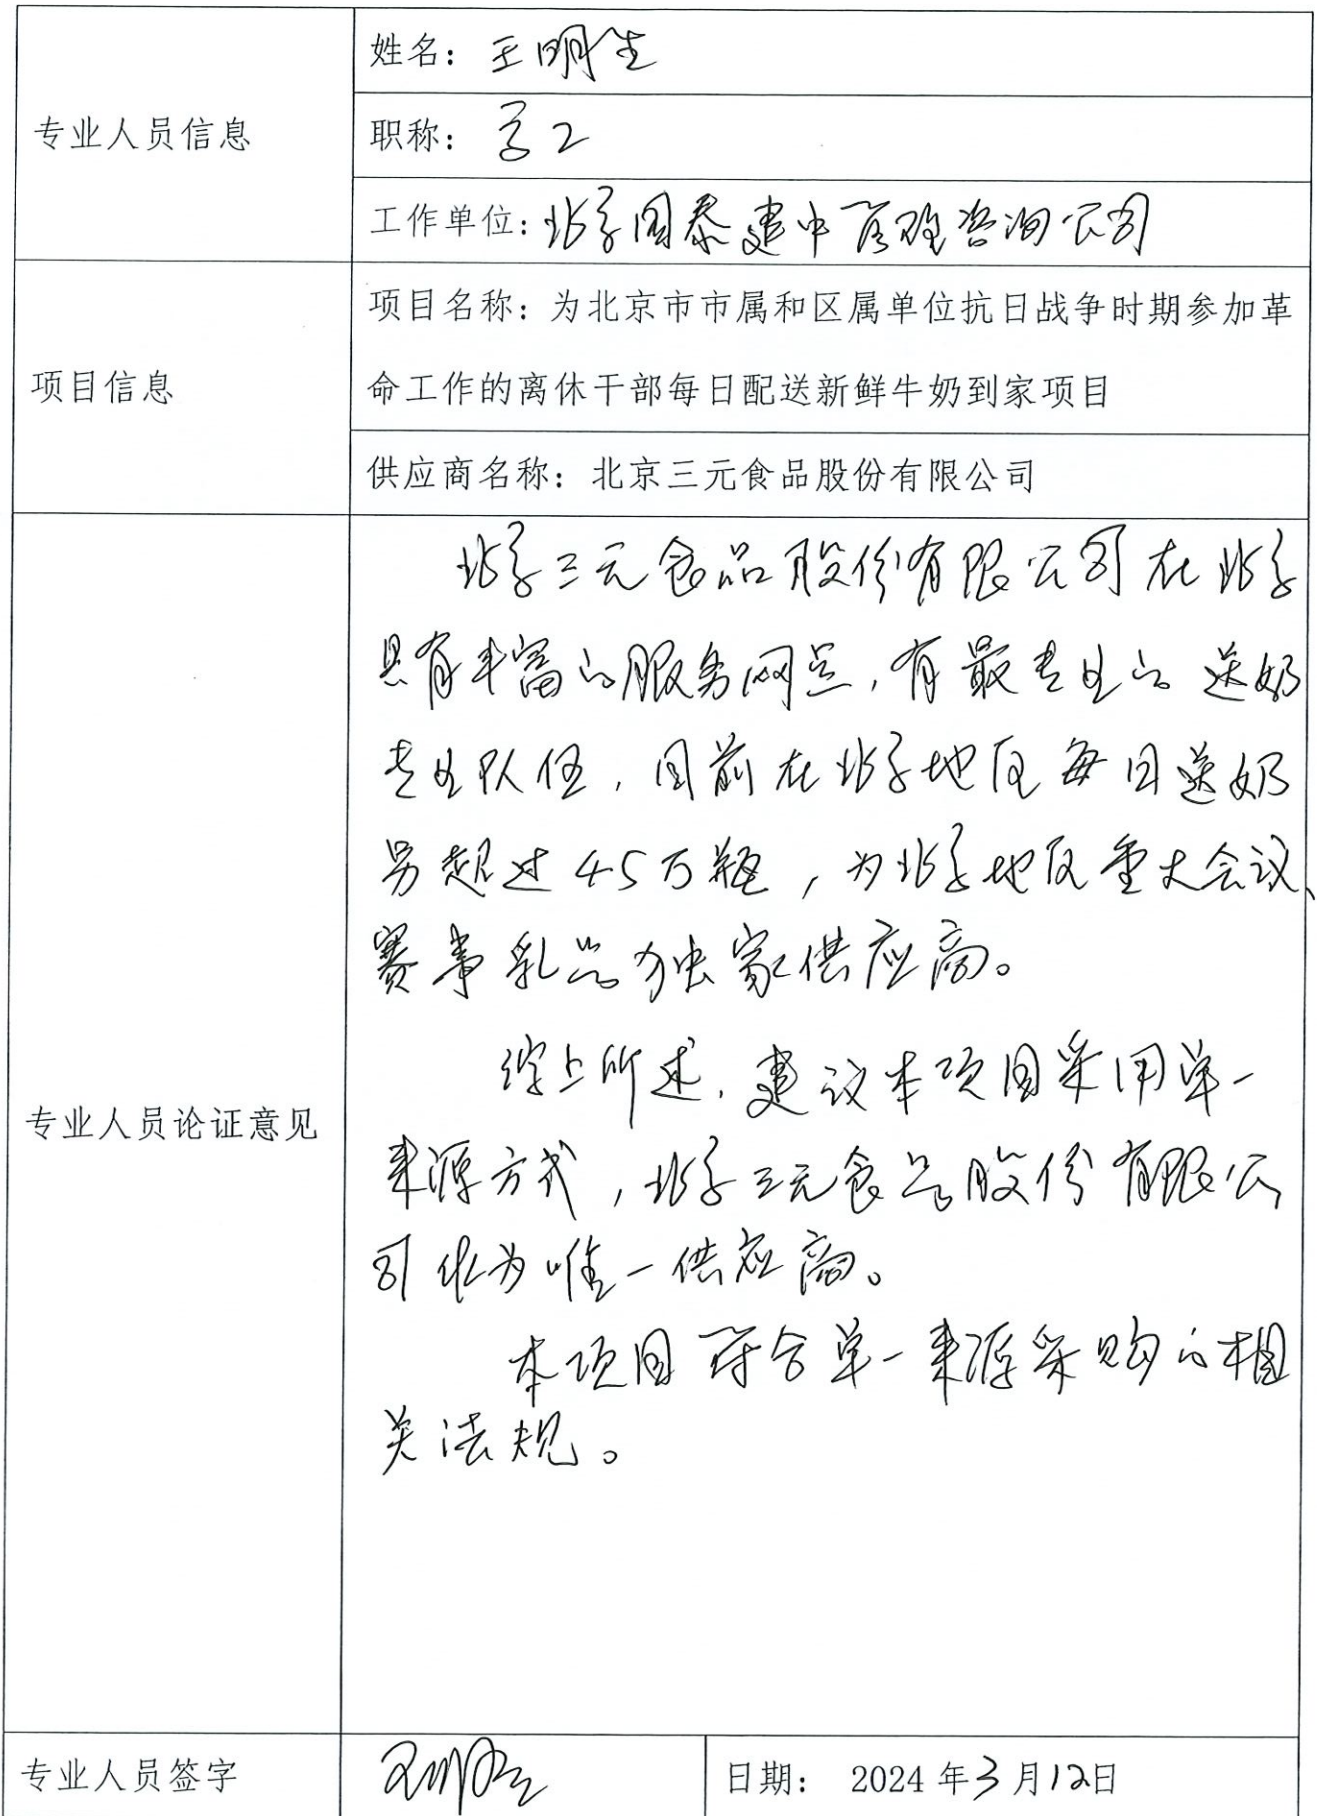 专业人员信息
姓名：王明生
职称：高工
工作单位：北京国泰建中管理咨询公司
项目信息
项目名称：为北京市市属和区属单位抗日战争时期参加革
命工作的离休干部每日配送新鲜牛奶到家项目
供应商名称：北京三元食品股份有限公司
专业人员论证意见
北京三元食品股份有限公司在北京
具有丰富的服务网点，有最专业的送奶
专业队伍，目前在北京地区每日送奶
量超过45万瓶，为北京地区重大会议、
赛事乳品独家供应商。
综上所述，建议本项目采用单一
来源方式，北京三元食品股份有限公
司作为唯一供应商。
本项目符合单一来源采购的相
关法规。
专业人员签字
王明生
日期： 2024年3月12日